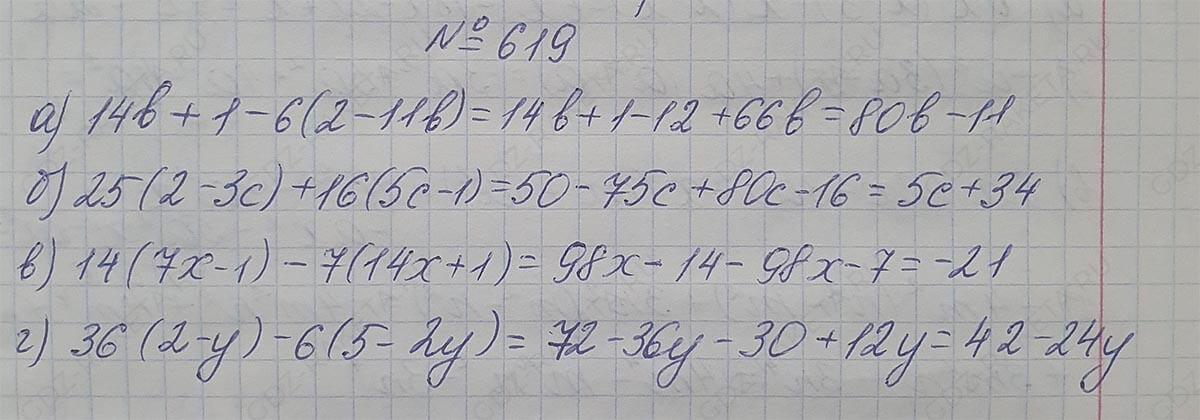 № 619
а) 14b + 1 - 6(2 - 11b) = 14b + 1 - 12 + 66b = 80b - 11
б) 25(2 - 3c) + 16(5c - 1) = 50 - 75c + 80c - 16 = 5c + 34
в) 14(7x - 1) - 7(14x + 1) = 98x - 14 - 98x - 7 = -21
г) 36(2 - y) - 6(5 - 2y) = 72 - 36y - 30 + 12y = 42 - 24y